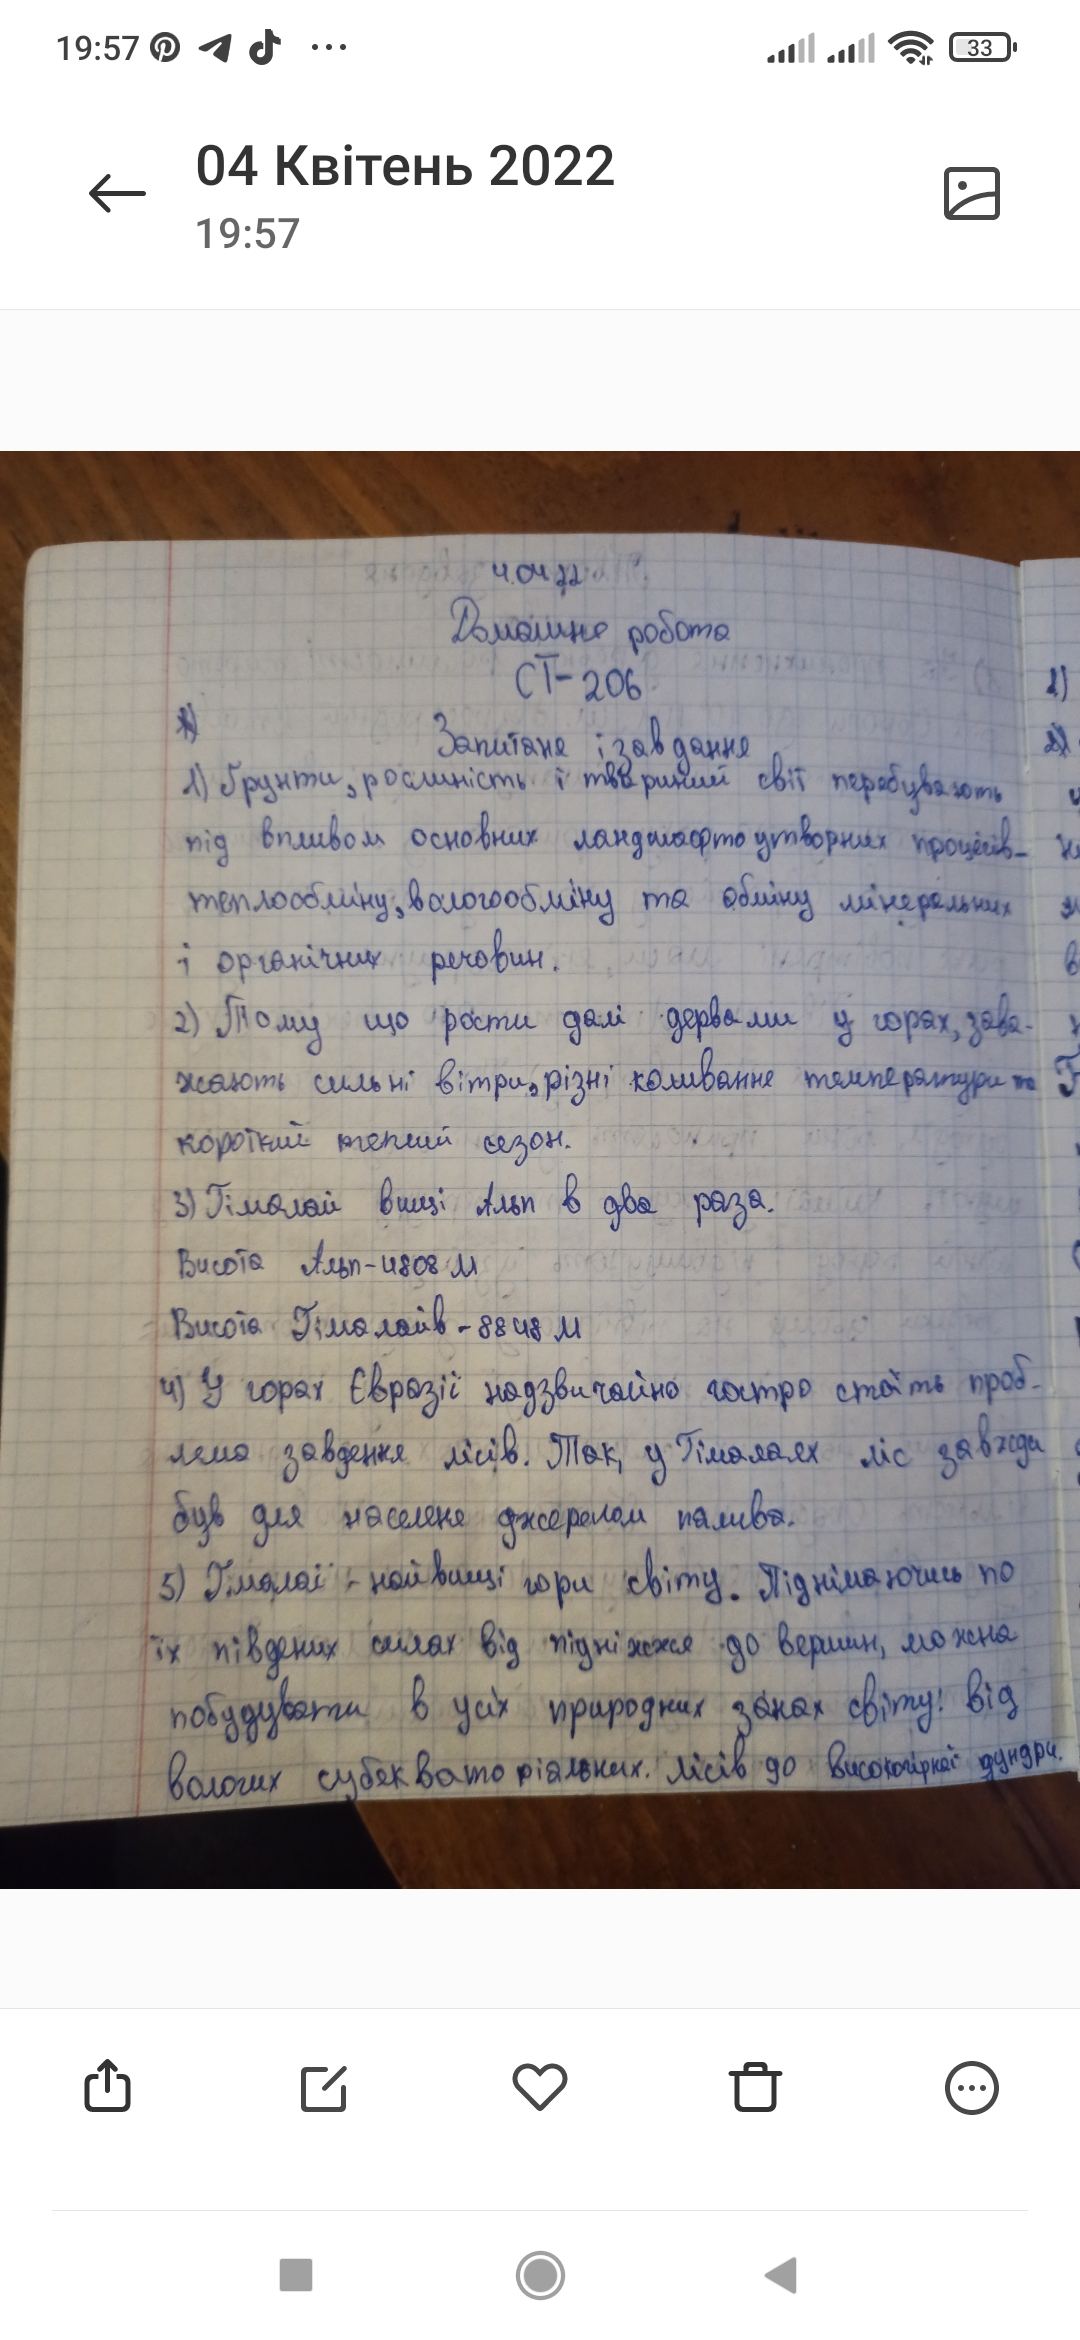 19:57
33
04 Квітень 2022
19:57
4.04 22
Домашнє робота
СТ-206
Запитанє і завдання
1) Ґрунти, рослиність і твариний світ перебувають
під впливом основних ландшафтоутворних процесів-
теплообміну, вологообміну та обміну мінеральних
і органічних речовин.
2) Тому що рости далі дервами у горах, зава-
жають сильні вітри, різні коливання температури та
короткий теплий сезон.
3) Гімалай вищі Альп в два раза.
Висота Альп-4808 м
Висота Гімалайв-8848 м
4) У горах Євразії надзвичайно гостро стоїть проб-
лема завденя лісів. Так, у Гімалаях ліс завжди
був для населенє джерелом палива.
5) Гімалаї - найвищі гори світу. Піднімаючись по
їх південих силах від підніжжя до вершин, можна
побудувати в усіх природних зонах світу: від
вологих субекваторіальних. лісів до високогірної дундри.
1)